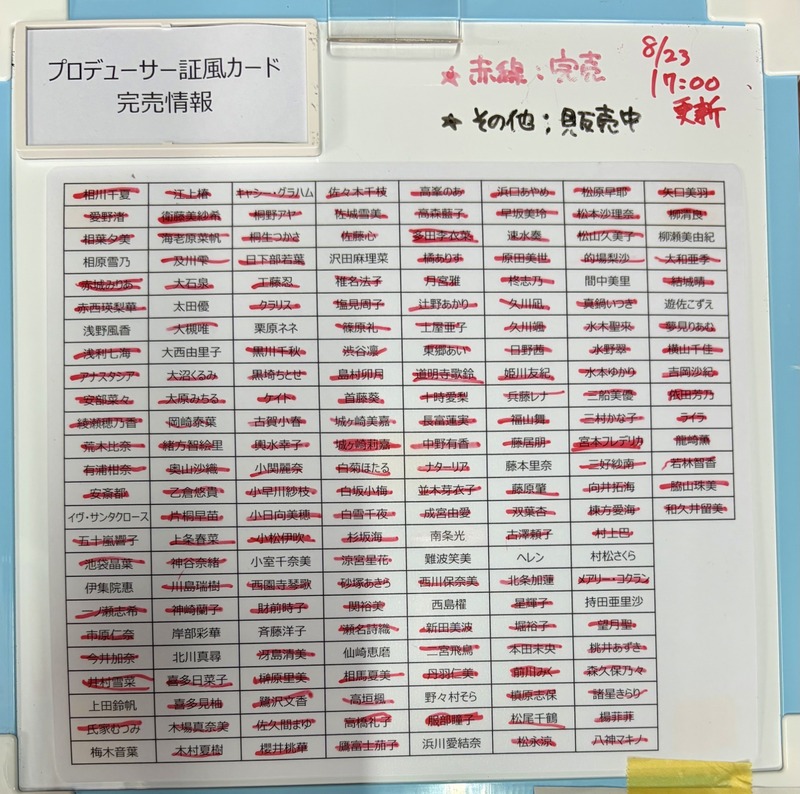 プロデューサー証風カード
完売情報
★ 赤線:完売
★ その他;販売中
8/23
17:00
更新
相川千夏 江上椿 キャシー・グラハム 佐々木千枝 高峯のあ 浜口あやめ 松原早耶 矢口美羽
愛野渚 衛藤美紗希 桐野アヤ 佐城雪美 高森藍子 早坂美玲 松本沙理奈 柳清良
相葉夕美 海老原菜帆 桐生つかさ 佐藤心 多田李衣菜 速水奏 松山久美子 柳瀬美由紀
相原雪乃 及川雫 日下部若葉 沢田麻理菜 橘ありす 原田美世 的場梨沙 大和亜季
赤城みりあ 大石泉 工藤忍 椎名法子 月宮雅 柊志乃 間中美里 結城晴
赤西瑛梨華 太田優 クラリス 塩見周子 辻野あかり 久川凪 真鍋いつき 遊佐こずえ
浅野風香 大槻唯 栗原ネネ 篠原礼 土屋亜子 久川颯 水木聖來 夢見りあむ
浅利七海 大西由里子 黒川千秋 渋谷凛 東郷あい 日野茜 水野翠 横山千佳
アナスタシア 大沼くるみ 黒埼ちとせ 島村卯月 道明寺歌鈴 姫川友紀 水本ゆかり 吉岡沙紀
安部菜々 大原みちる ケイト 首藤葵 十時愛梨 兵藤レナ 三船美優 依田芳乃
綾瀬穂乃香 岡崎泰葉 古賀小春 城ヶ崎美嘉 長富蓮実 福山舞 三村かな子 ライラ
荒木比奈 緒方智絵里 輿水幸子 城ヶ崎莉嘉 中野有香 藤居朋 宮本フレデリカ 龍崎薫
有浦柑奈 奥山沙織 小関麗奈 白菊ほたる ナターリア 藤本里奈 三好紗南 若林智香
安斎都 乙倉悠貴 小早川紗枝 白坂小梅 並木芽衣子 藤原肇 向井拓海 脇山珠美
イヴ・サンタクロース 片桐早苗 小日向美穂 白雪千夜 成宮由愛 双葉杏 棟方愛海 和久井留美
五十嵐響子 上条春菜 小松伊吹 杉坂海 南条光 古澤頼子 村上巴
池袋晶葉 神谷奈緒 小室千奈美 涼宮星花 難波笑美 ヘレン 村松さくら
伊集院惠 川島瑞樹 西園寺琴歌 砂塚あきら 西川保奈美 北条加蓮 メアリー・コクラン
一ノ瀬志希 神崎蘭子 財前時子 関裕美 西島櫂 星輝子 持田亜里沙
市原仁奈 岸部彩華 斉藤洋子 瀬名詩織 新田美波 堀裕子 望月聖
今井加奈 北川真尋 冴島清美 仙崎恵磨 二宮飛鳥 本田未央 桃井あずき
井村雪菜 喜多日菜子 榊原里美 相馬夏美 丹羽仁美 前川みく 森久保乃々
上田鈴帆 喜多見柚 鷺沢文香 高垣楓 野々村そら 槙原志保 諸星きらり
氏家むつみ 木場真奈美 佐久間まゆ 高橋礼子 服部瞳子 松尾千鶴 楊菲菲
梅木音葉 木村夏樹 櫻井桃華 鷹富士茄子 浜川愛結奈 松永涼 八神マキノ